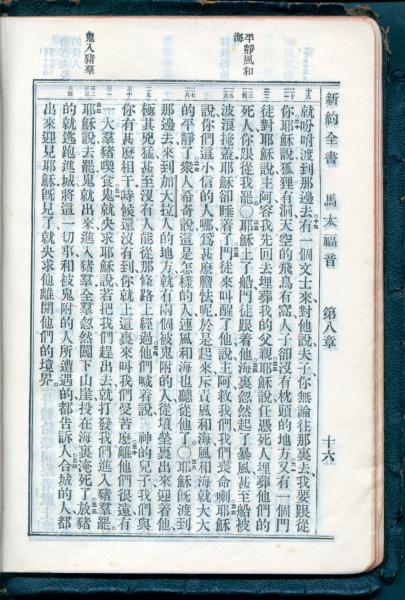 新約全書 馬太福音 第八章 十六
就吩咐渡到那邊去有一個文士來對他說夫子你無論往那裏去我要跟從
你耶穌說狐狸有洞天空的飛鳥有窩人子卻沒有枕頭的地方又有一個門
徒對耶穌說主阿容我先回去埋葬我的父親耶穌說任憑死人埋葬他們的
死人你跟從我罷〇耶穌上了船門徒跟着他海裏忽然起了暴風甚至船被
平靜風和
海
波浪掩蓋耶穌卻睡着了門徒來叫醒了他說主救我們我們喪命喇耶穌
說你們這小信的人哪爲甚麽膽怯呢於是起來斥責風和海風和海就大大
的平靜了衆人希奇說這是怎樣的人連風和海也聽從他了〇耶穌旣渡到
那邊去來到加大拉人的地方就有兩個被鬼附的人從墳塋裏出來迎着他
極其兇猛甚至沒有人能從那條路上經過他們喊着說 神的兒子我們與
你有甚麽相干時候還沒有到你就上這裏來叫我們受苦麽離他們很遠有
一大羣豬喫食鬼就央求耶穌說若把我們趕出去就打發我們進入豬羣罷
鬼入豬羣
耶穌說去罷鬼就出來進入豬羣全羣忽然闖下山崖投在海裏淹死了放豬
的就逃跑進城將這一切事和被鬼附的人所遭遇的都告訴人合城的人都
出來迎見耶穌旣見了就央求他離開他們的境界。